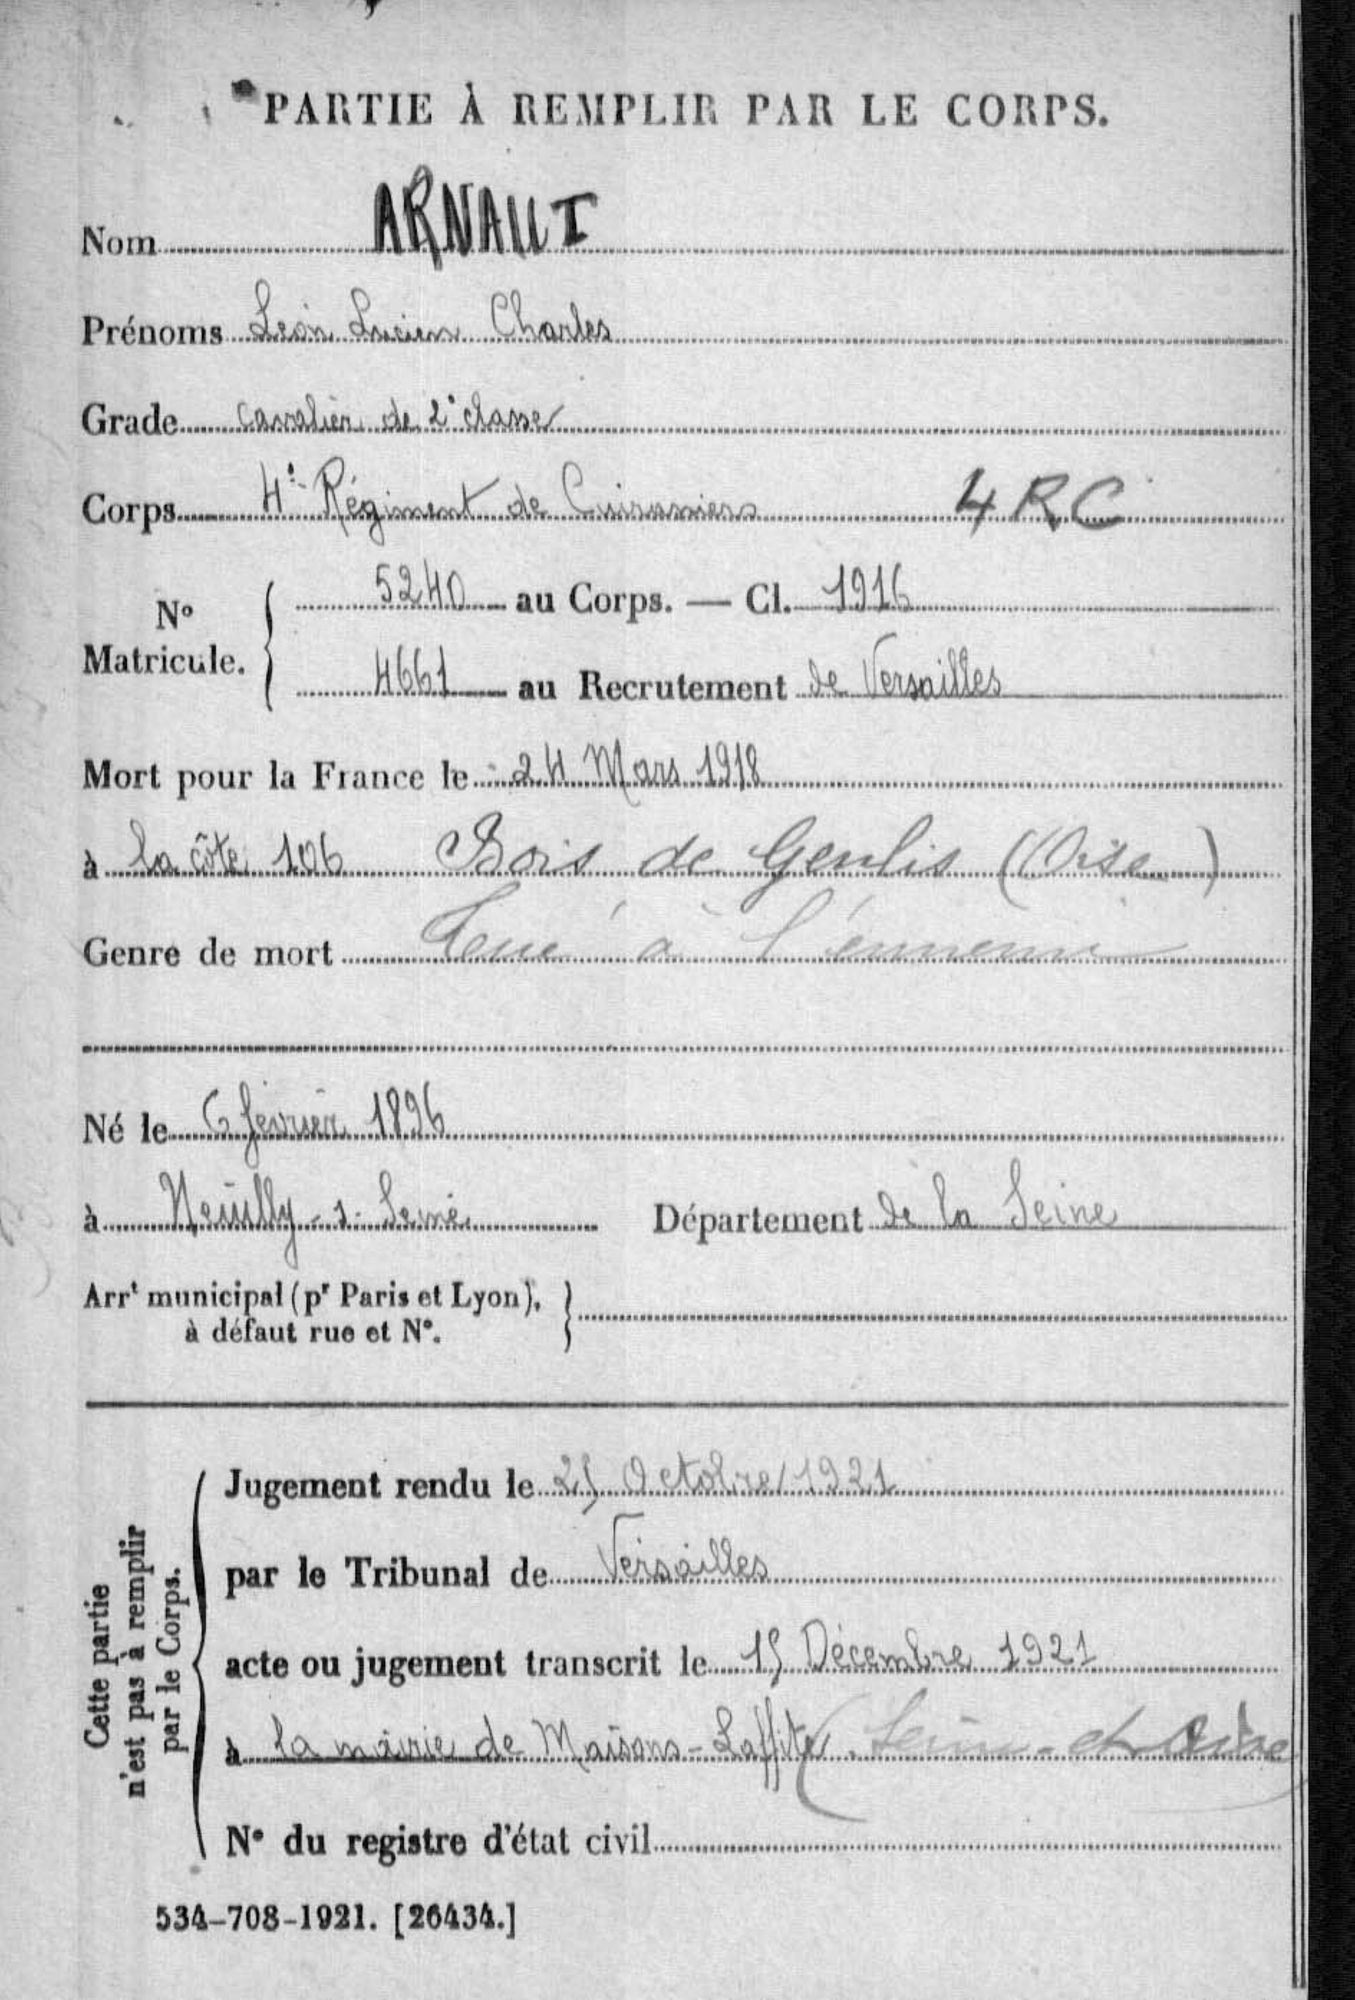 PARTIE À REMPLIR PAR LE CORPS.
Nom ARNAULT
Prénoms Léon Lucien Charles
Grade Cavalier de 2e classe
Corps 4e Régiment de Cuirassiers 4 RC
No Matricule. { 5240 au Corps. — Cl. 1916
4661 au Recrutement de Versailles
Mort pour la France le 24 Mars 1918
à la côte 106 Bois de Genlis (Oise)
Genre de mort Tué à l'ennemi
Né le 6 février 1896
à Neuilly-s-Seine Département de la Seine
Arrt municipal (pr Paris et Lyon), }
à défaut rue et No.
Cette partie
n'est pas à remplir
par le Corps.
Jugement rendu le 25 Octobre 1921
par le Tribunal de Versailles
acte ou jugement transcrit le 15 Décembre 1921
à la mairie de Maisons-Laffitte (Seine-et-Oise)
No du registre d'état civil
534-708-1921. [26434.]